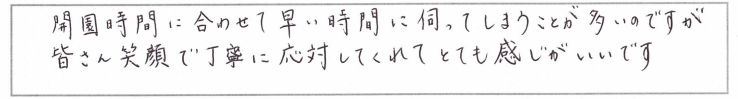 開園時間に合わせて早い時間に伺ってしまうことが多いのですが
皆さん笑顔で丁寧に応対してくれてとても感じがいいです